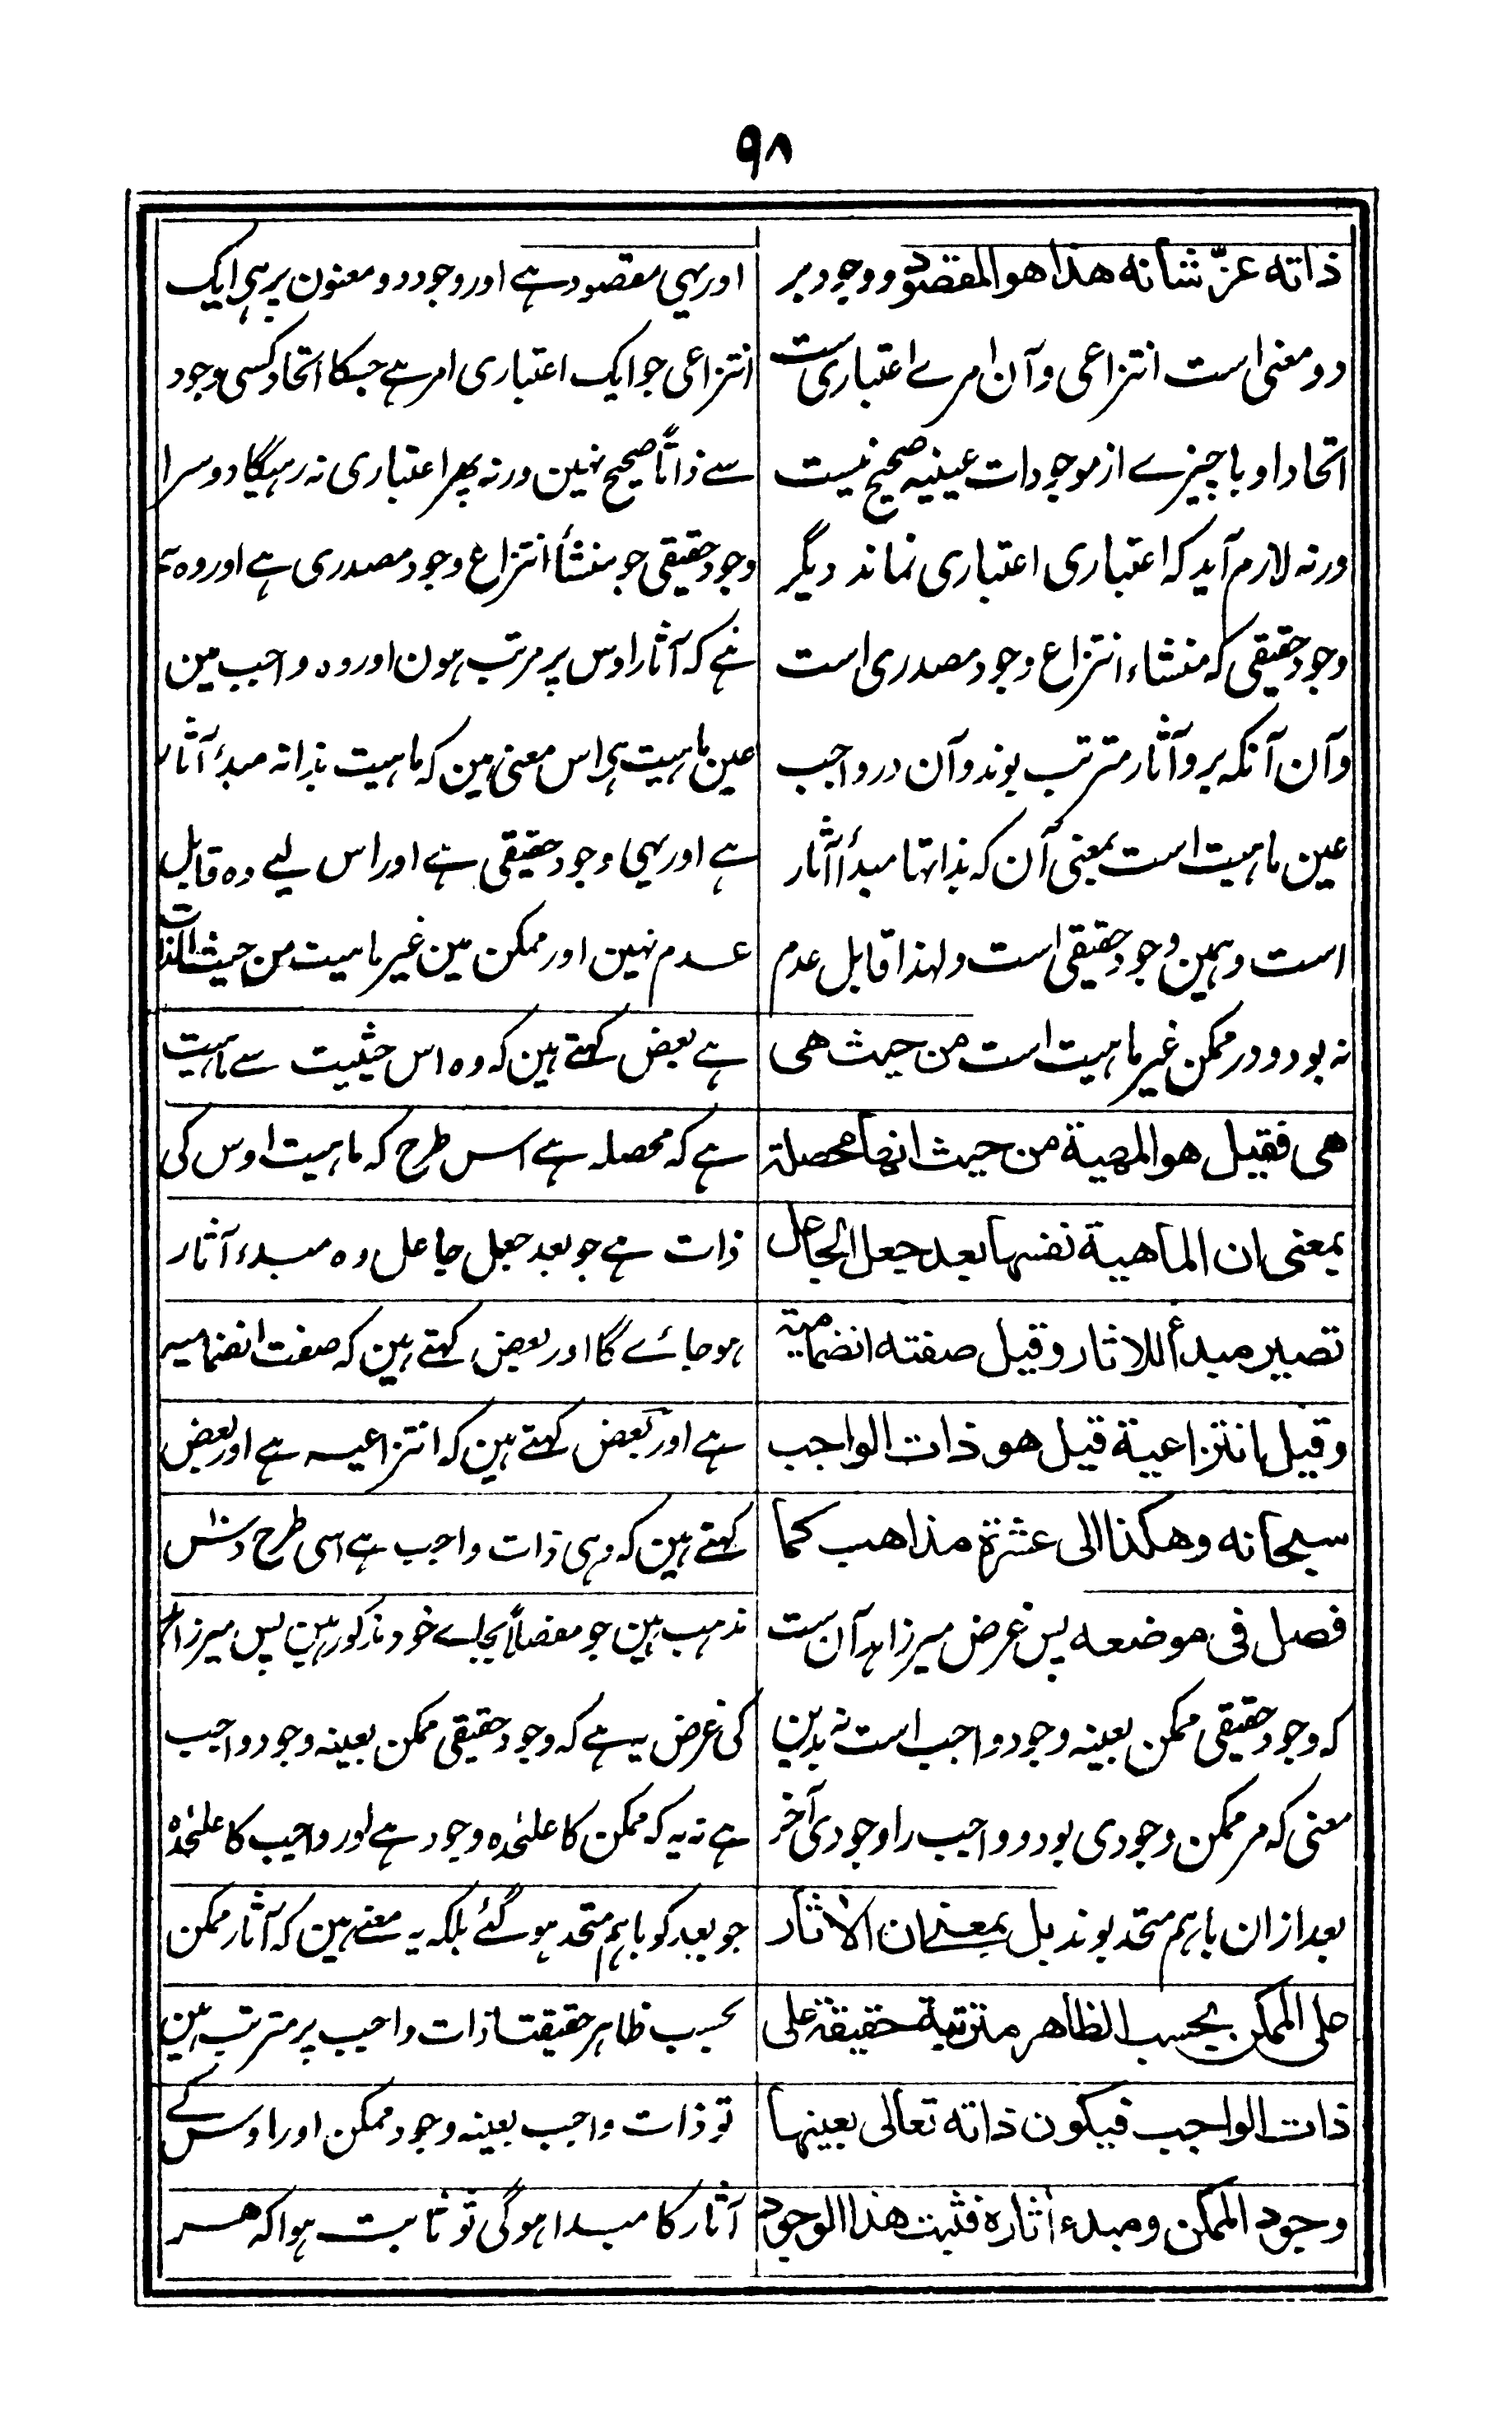 ۹۸
ذاته عزّ شانه هذا هو المقصود و وجود بر
دو معنی است انتزاعی و آن امرے اعتباری ست
اتحاد او با چیزے از موجودات عینیه صحیح نیست
ورنه لازم آید که اعتباری اعتباری نماند دیگر
وجود حقیقی که منشاء انتزاع وجود مصدری است
و آن آنکه بر و آثار مترتب بوند و آن در واجب
عین ماهیت است بمعنی آن که بذاتها مبدأ آثار
است و همین وجود حقیقی است و لهذا قابل عدم
نه بود و در ممکن غیر ماهیت است من حیث هی
هی فقیل هو المهیة من حیث انها محصلة
بمعنی ان الماهیة نفسها بعد جعل الجاعل
تصیر مبدأ للاثار و قیل صفته انضمامیة
و قیل انتزاعیة قیل هو ذات الواجب
سبحانه و هکذا الی عشرة مذاهب کما
فصل فی موضعه پس غرض میرزاهد آن ست
که وجود حقیقی ممکن بعینه وجود واجب است نه بدین
معنی که مر ممکن وجودی بود و واجب را وجودی آخر
بعد ازان باهم متحد بوند بل بمعنے ان الاثار
علی الممکن بحسب الظاهر مترتبة حقیقة علی
ذات الواجب فیکون ذاته تعالی بعینها
وجود الممکن و مبدء اثاره فثبت هذا الوجود
اور یہی مقصود ہے اور وجود دو معنون پر ہی ایک
انتزاعی جو ایک اعتباری امر ہے جسکا اتحاد کسی وجود
سے ذاتاً صحیح نہین ورنہ پھر اعتباری نہ رہیگا دوسرا
وجود حقیقی جو منشأ انتزاع وجود مصدری ہے اور وہ یہ
ہے کہ آثار اوس پر مرتب ہون اور وہ واجب مین
عین ماہیت ہی اس معنی مین کہ ماہیت بذاتہ مبدأ آثار
ہے اور یہی وجود حقیقی ہے اور اس لیے وہ قابل
عدم نہین اور ممکن مین غیر ماہیت من حیث الذات
ہے بعض کہتے ہین کہ وہ اس حیثیت سے ماہیت
ہے کہ محصلہ ہے اسس طرح کہ ماہیت اوس کی
ذات ہے جو بعد جعل جاعل وہ مبدء آثار
ہو جائے گا اور بعض کہتے ہین کہ صفت انضمامیہ
ہے اور بعض کہتے ہین کہ انتزاعیہ ہے اور بعض
کہتے ہین کہ وہی ذات واجب ہے اسی طرح دس
مذہب ہین جو مفصلاً بجاے خود مذکور ہین پس میرزاہد
کی غرض یہ ہے کہ وجود حقیقی ممکن بعینہ وجود واجب
ہے نہ یہ کہ ممکن کا علیٰحدہ وجود ہے اور واجب کا علیٰحدہ
جو بعد کو باہم متحد ہو گئے بلکہ یہ معنے ہین کہ آثار ممکن
بحسب ظاہر حقیقتا ذات واجب پر مترتب ہین
تو ذات واجب بعینہ وجود ممکن اور اوس کے
آثار کا مبدا ہوگی تو ثابت ہوا کہ ہر